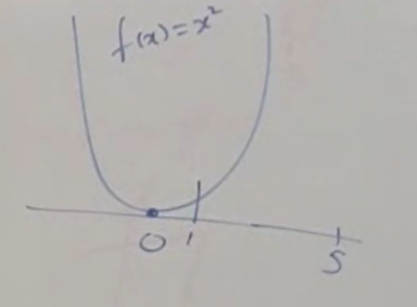 f(x)=x²
0 1 5